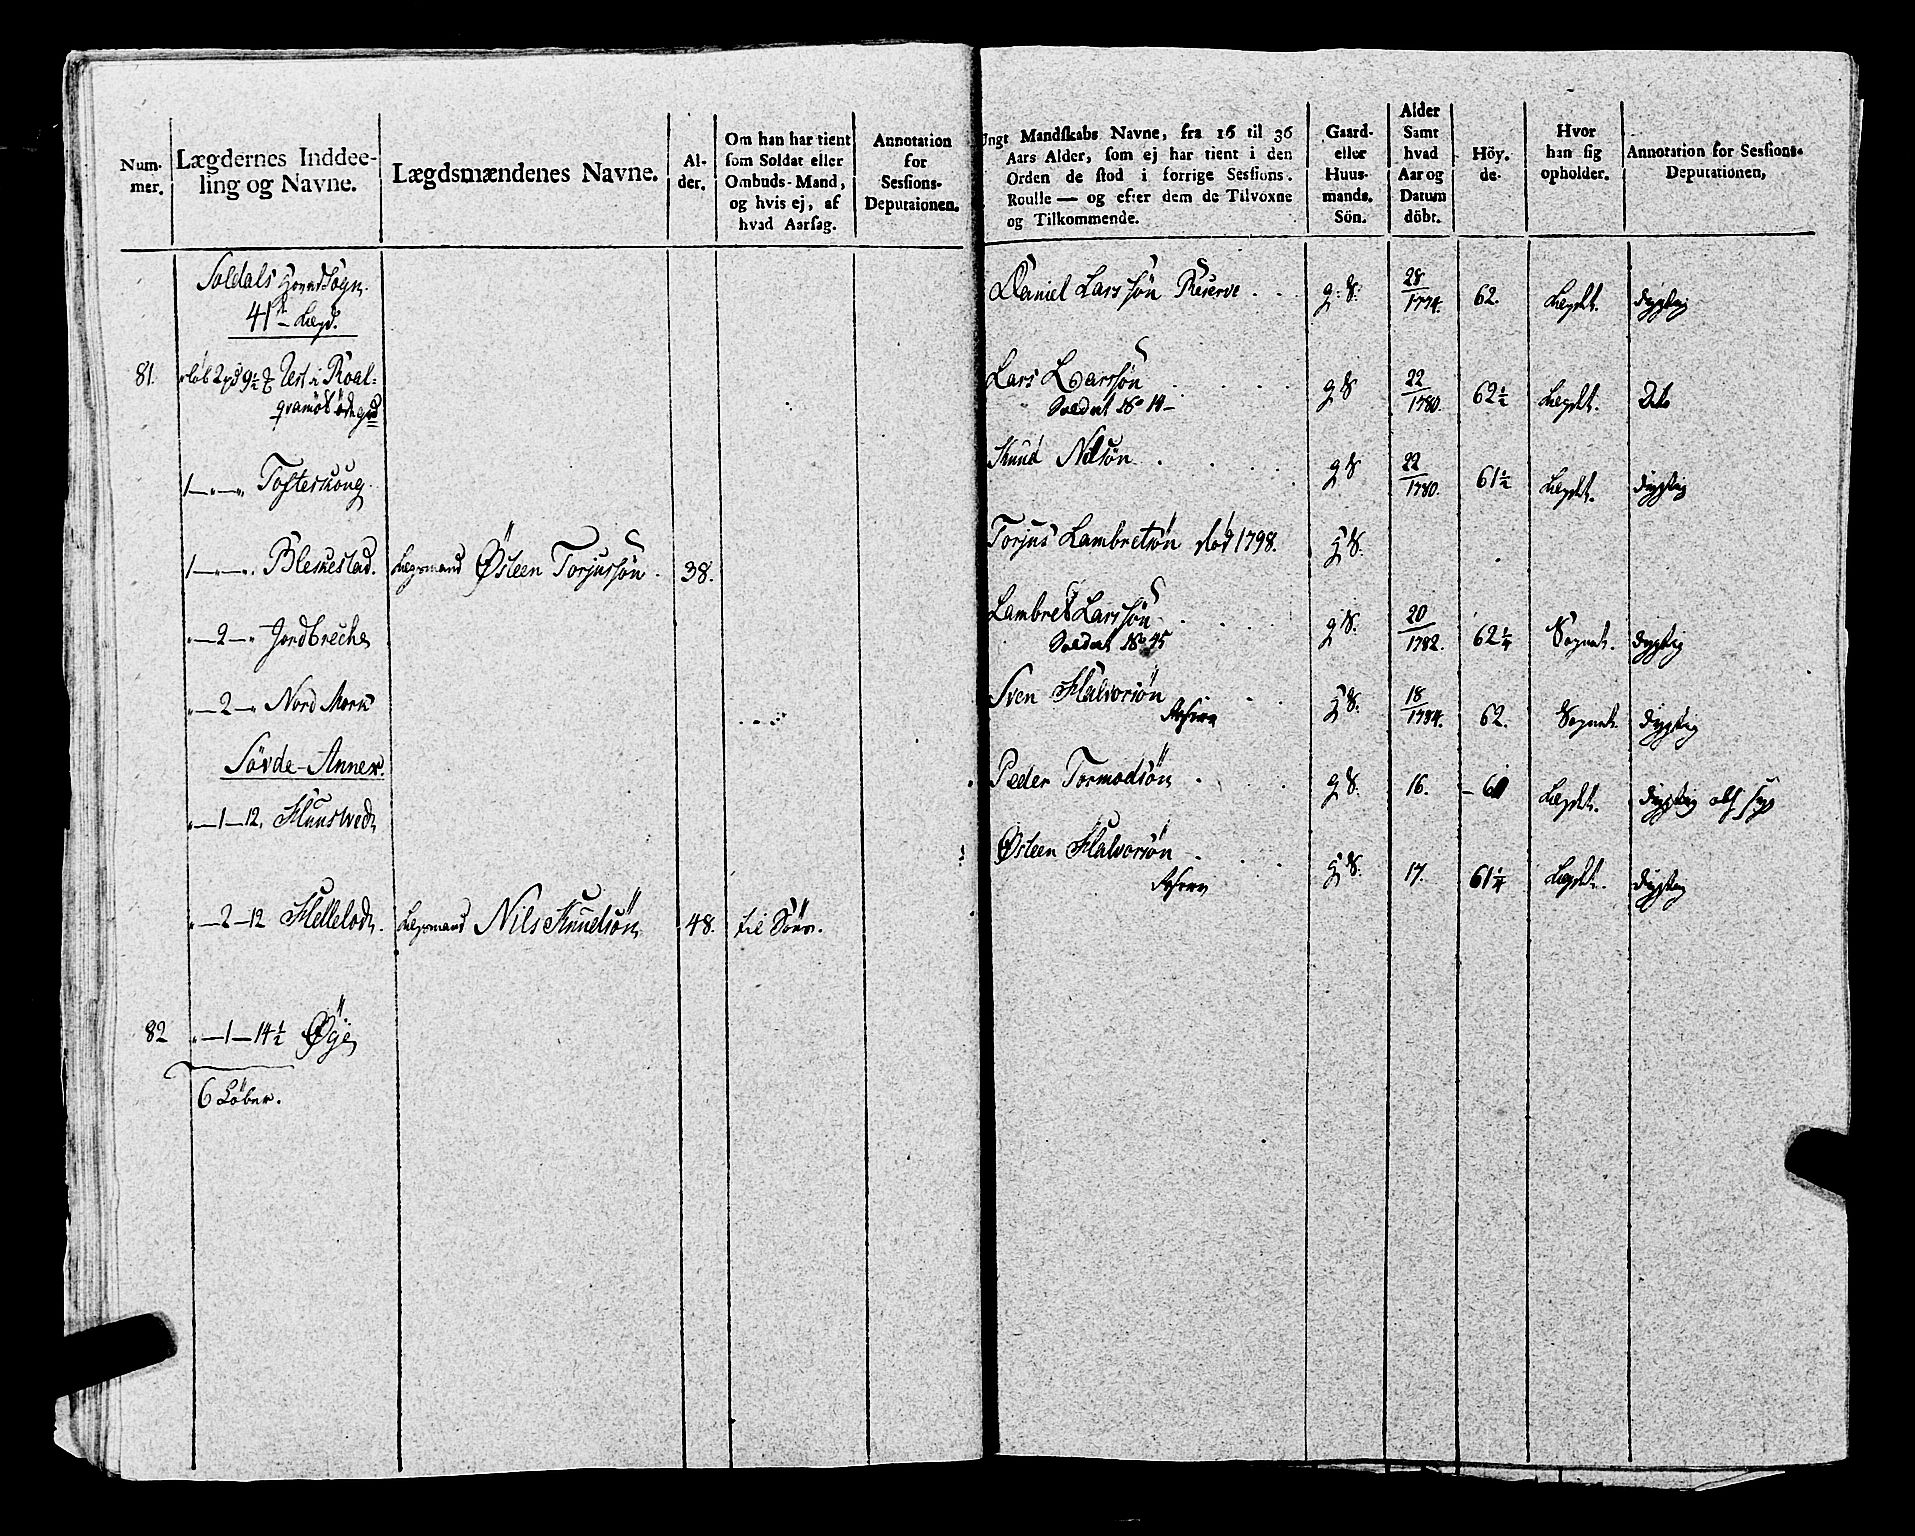 Num-
mer.
Lægdernes Inddee-
ling og Navne.
Lægdsmændenes Navne.
Al-
der.
Om han har tient
som Soldat eller
Ombuds-Mand,
og hvis ej, af
hvad Aarsag.
Annotation
for
Sessions-
Deputaionen.
Soldals Hovedsogn.
41de Lægd.
81.
Rest i Roal-
qvamös ödegrd
1 — " — " Tofteskoug.
1 — " — " Bleskestad.
Legsmand Østeen Torjussön. 38.
" — 2 — " Jordbrecke
" — 2 — " Nord Mork
Sövde-Annex.
" — 1 — 12. Huustvedt
" — 2 — 12 Helleland.
Legsmand Nils Knudsön 48. til Söes.
82 " — 1 — 14 ½ Øye
6 Löber.
Ungt Mandskabs Navne, fra 16 til 36
Aars Alder, som ej har tient i den
Orden de stod i forrige Sessions.
Roulle — og efter dem de Tilvoxne
og Tilkommende.
Gaard-
eller
Huus-
mands.
Sön.
Alder
Samt
hvad
Aar og
Datum
döbt.
Höy.
de.
Hvor
han sig
opholder.
Annotation for Sessions-
Deputationen,
Daniel Larssön Reserve . . g. S. 28/1774. 62. Legdet. dygtig
Lars Larssön g S 22/1780. 62 ½ Legdet. Do
Soldat No 14 —
Knud Nilsön g S 22/1780. 61 ½ Legdet. dygtig
Torjus Lambretsön död 1798. g S.
Lambret Larssön g S. 20/1782. 62 ¼ Sognet. dygtig
Soldat No 45
Sven Halvorsön g S. 18/1784. 62. Sognet. dygtig
Peder Tormodsön g S. 16. — 61 Legdet. dygtig
Østeen Halvorsön g S. 17. 61 ¼ Legdet. dygtig